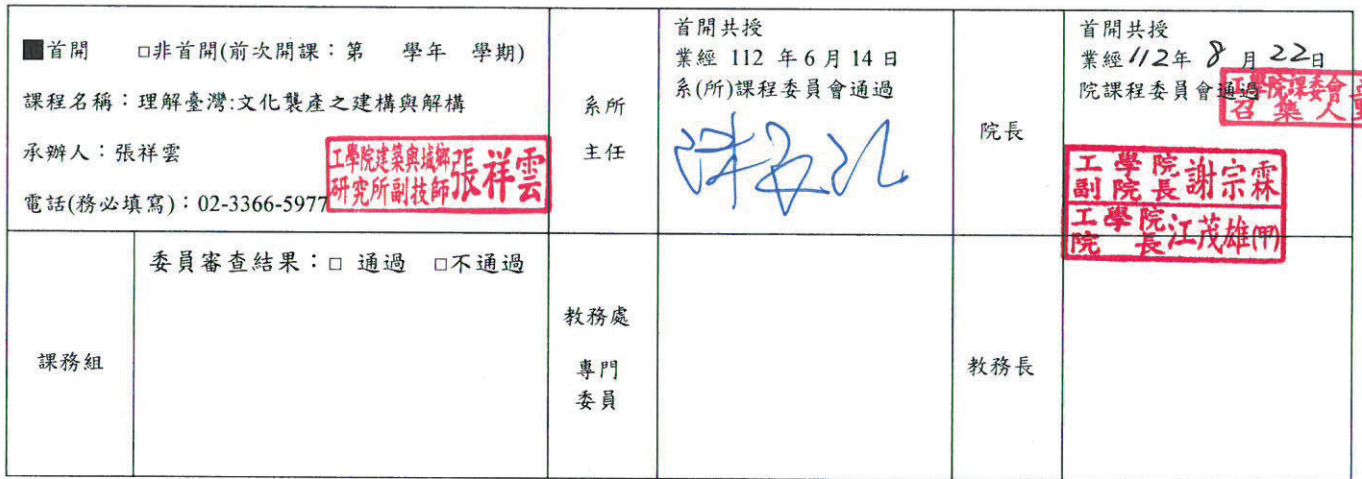 ■首開 □非首開(前次開課：第 學年 學期)
課程名稱：理解臺灣:文化襲產之建構與解構
承辦人：張祥雲
電話(務必填寫)：02-3366-5977
工學院建築與城鄉
研究所副技師
張祥雲
系所
主任
首開共授
業經 112 年 6 月 14 日
系(所)課程委員會通過
院長
首開共授
業經 112 年 8 月 22 日
院課程委員會通過
工學院課委會
召集人
工學院
副院長
謝宗霖
工學院
院長
江茂雄(甲)
課務組
委員審查結果：□ 通過 □不通過
教務處
專門
委員
教務長